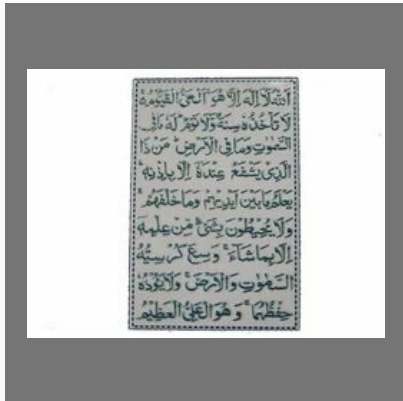 اَللّٰهُ لَاۤ اِلٰهَ اِلَّا هُوَۚ اَلْحَیُّ الْقَیُّوْمُ ۚ
لَا تَاْخُذُهٗ سِنَةٌ وَّلَا نَوْمٌ ؕ لَهٗ مَا فِی
السَّمٰوٰتِ وَمَا فِی الْاَرْضِ ؕ مَنْ ذَا
الَّذِیْ یَشْفَعُ عِنْدَهٗۤ اِلَّا بِاِذْنِهٖ ؕ
یَعْلَمُ مَا بَیْنَ اَیْدِیْهِمْ وَمَا خَلْفَهُمْ ۚ
وَلَا یُحِیْطُوْنَ بِشَیْءٍ مِّنْ عِلْمِهٖۤ
اِلَّا بِمَا شَآءَ ۚ وَسِعَ كُرْسِیُّهُ
السَّمٰوٰتِ وَالْاَرْضَ ۚ وَلَا یَـُٔوْدُهٗ
حِفْظُهُمَا ۚ وَهُوَ الْعَلِیُّ الْعَظِیْمُ